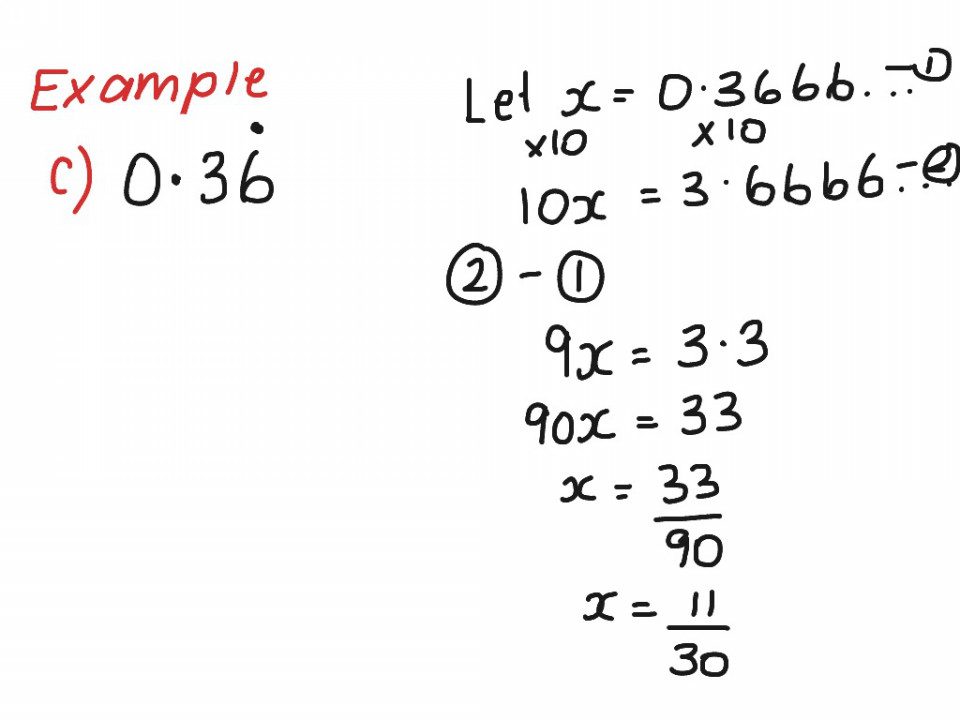 Example
c) 0.36̇
Let x = 0.3666... —①
×10 ×10
10x = 3.6666... —②
② - ①
9x = 3.3
90x = 33
x = 33/90
x = 11/30